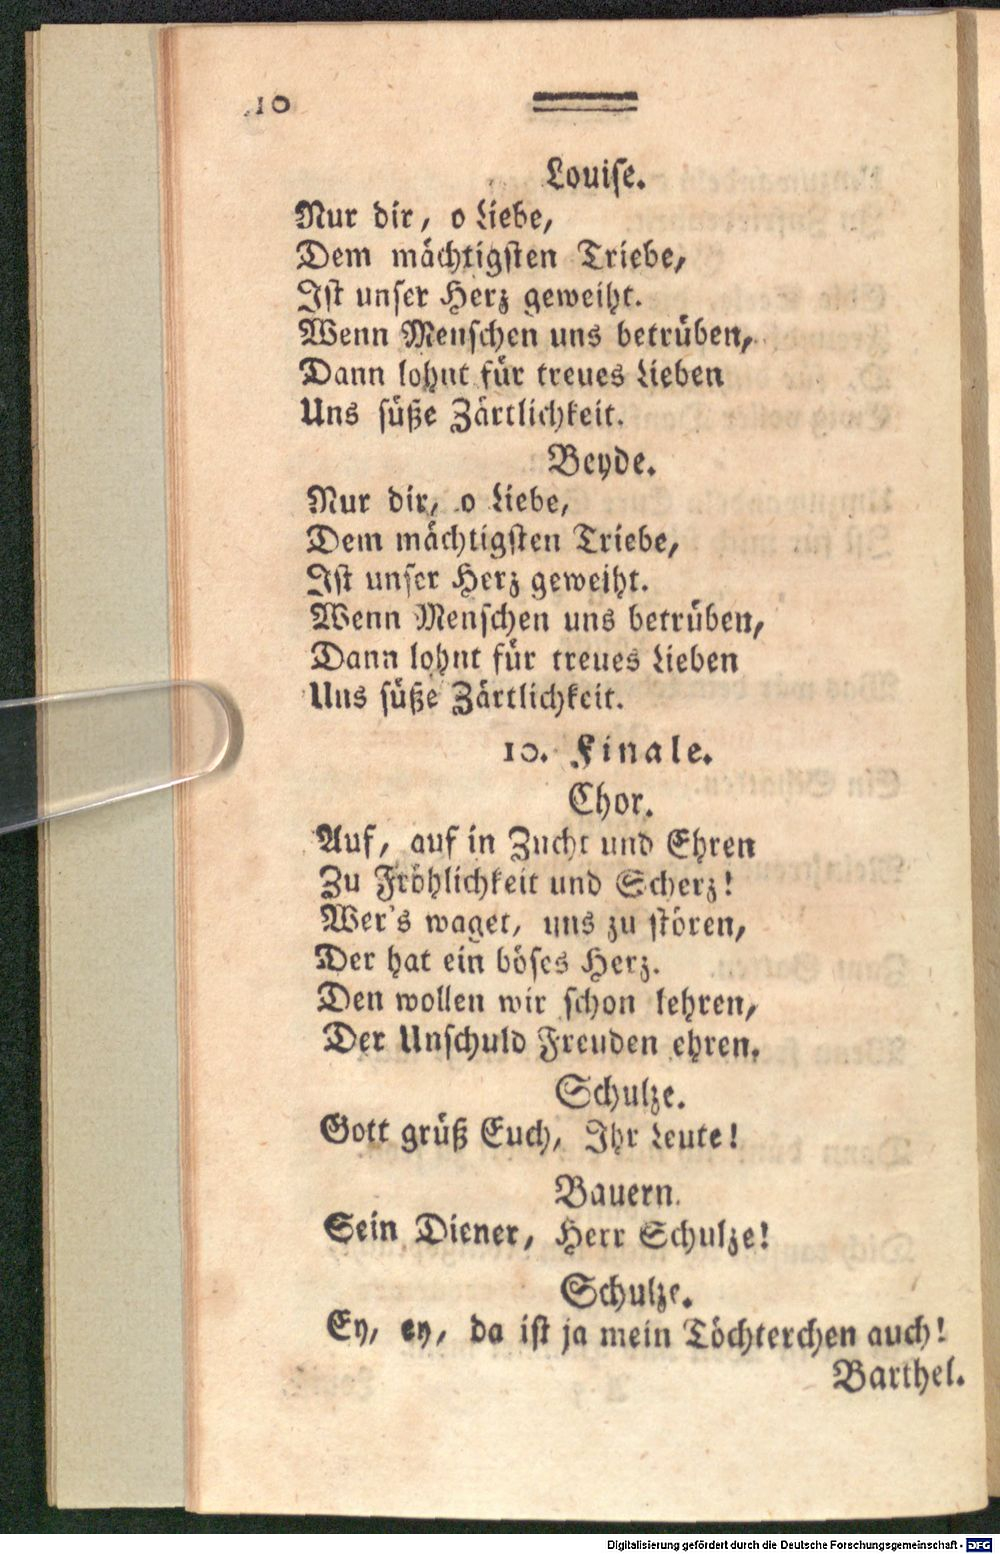 10
Louise.
Nur dir, o Liebe,
Dem mächtigsten Triebe,
Ist unser Herz geweiht.
Wenn Menschen uns betrüben,
Dann lohnt für treues Lieben
Uns süße Zärtlichkeit.
Beyde.
Nur dir, o Liebe,
Dem mächtigsten Triebe,
Ist unser Herz geweiht.
Wenn Menschen uns betrüben,
Dann lohnt für treues Lieben
Uns süße Zärtlichkeit.
10. Finale.
Chor.
Auf, auf in Zucht und Ehren
Zu Fröhlichkeit und Scherz!
Wer's waget, uns zu stören,
Der hat ein böses Herz.
Den wollen wir schon lehren,
Der Unschuld Freuden ehren.
Schulze.
Gott grüß Euch, Ihr Leute!
Bauern.
Sein Diener, Herr Schulze!
Schulze.
Ey, ey, da ist ja mein Töchterchen auch!
Barthel.
Digitalisierung gefördert durch die Deutsche Forschungsgemeinschaft - DFG